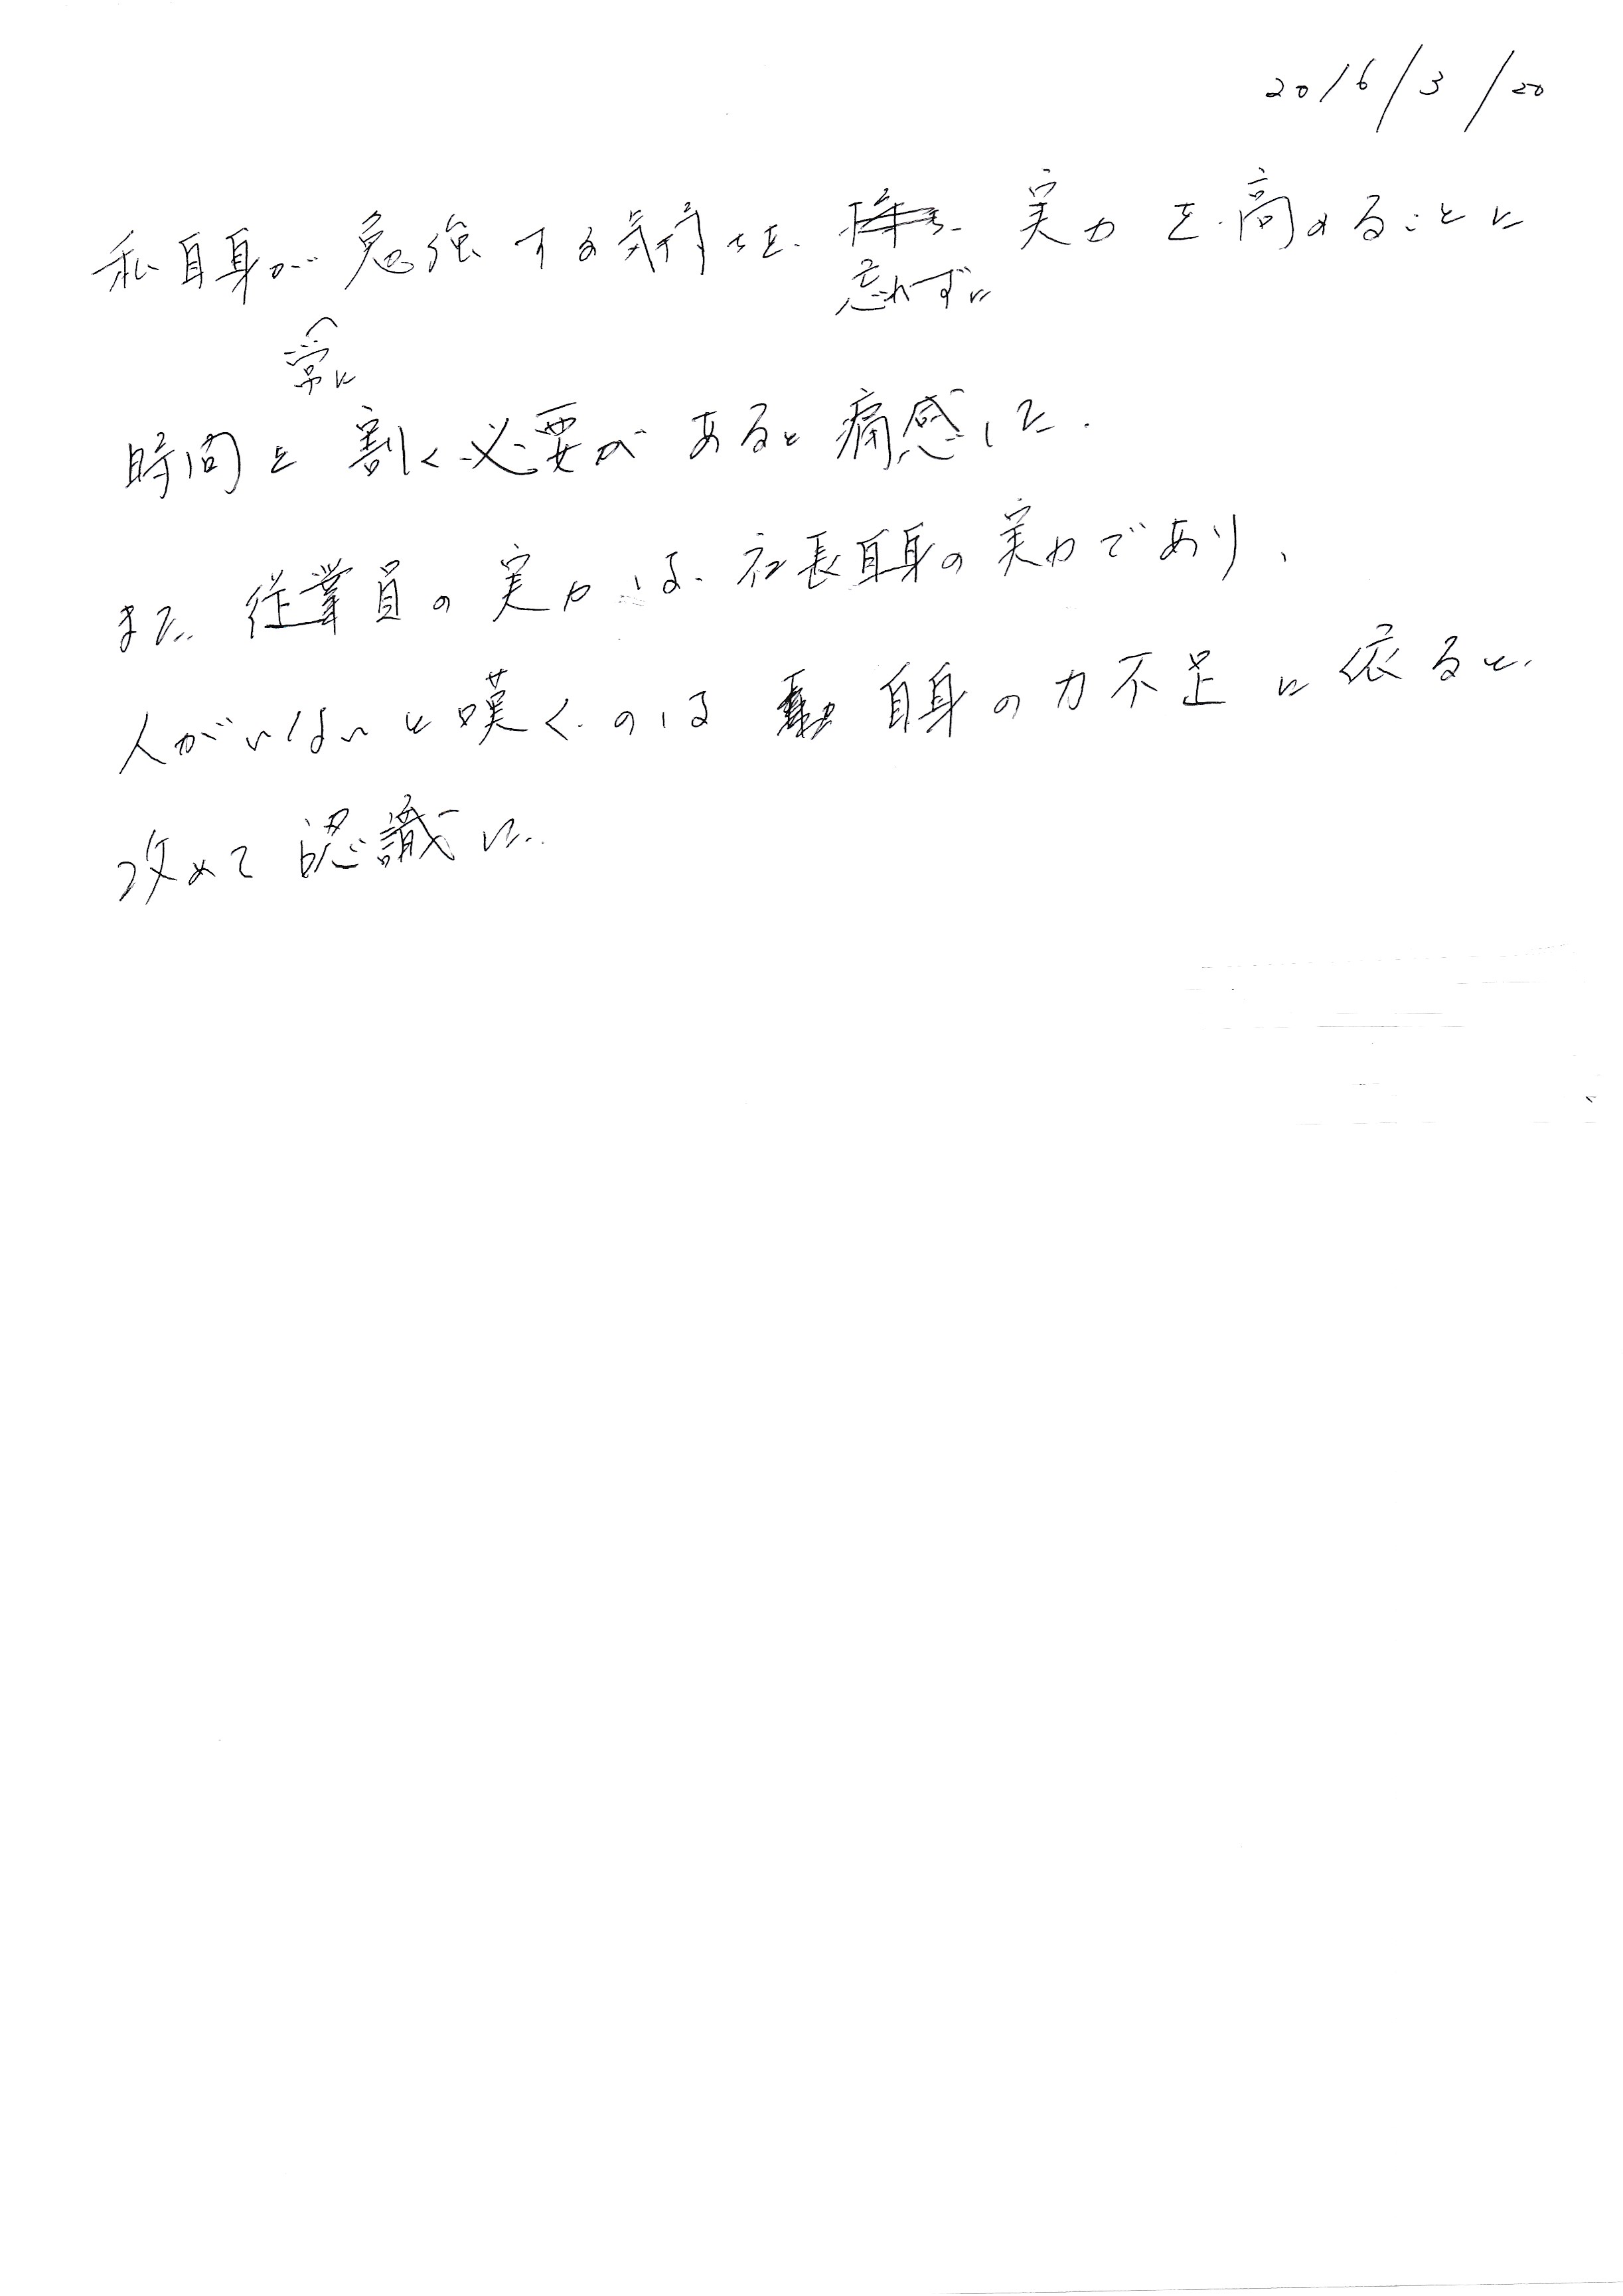 2016/3/20
私自身が勉強する気持ちを、実力を高めることに
忘れずに
常に
時間を割く必要があると痛感した。
また、従業員の実力は、社長自身の実力であり、
人がいないと嘆くのは自身の力不足に依ると、
改めて認識した。